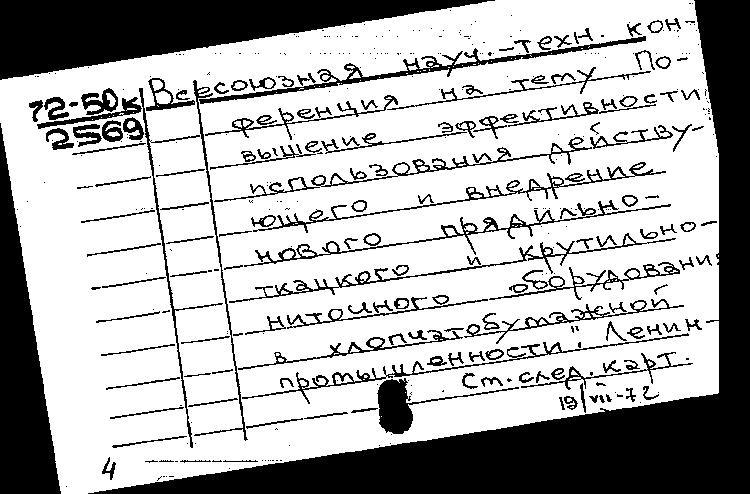 72-50к
2569
Всесоюзная науч.-техн. кон-
ференция на тему „По-
вышение эффективности
использования действу-
ющего и внедрение
нового прядильно-
ткацкого и крутильно-
ниточного оборудования
в хлопчатобумажной
промышленности". Ленин-
См. след. карт.
19/VII-72
4